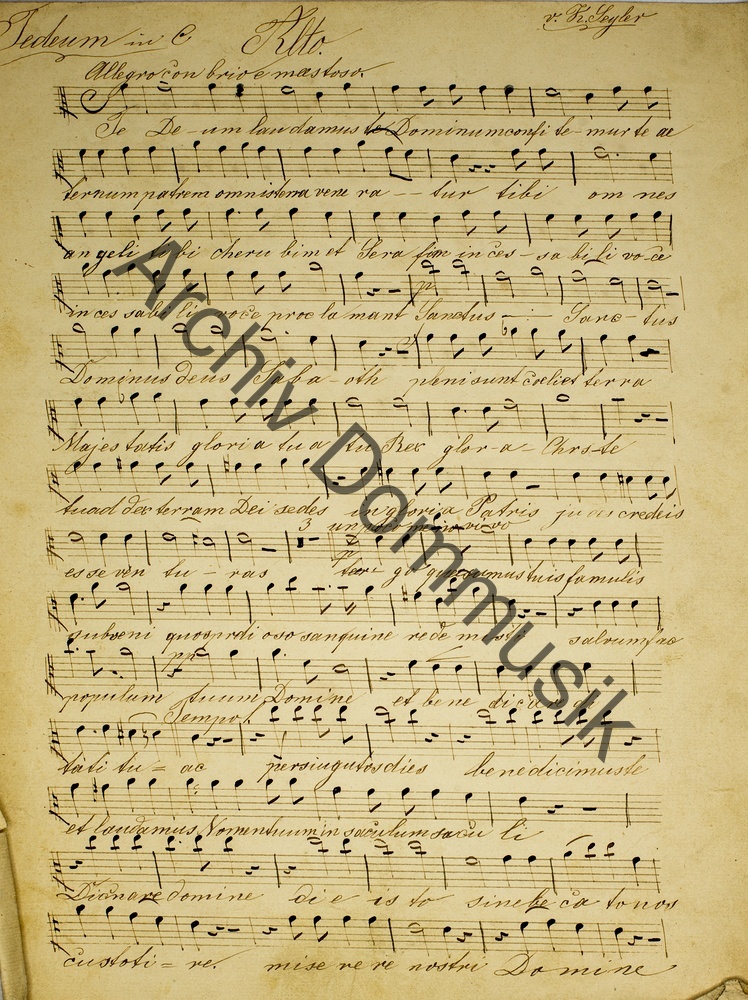 Tedeum in C Alto. v. K. Seyler
Allegro con brio e mæstoso.
Te De-um laudamus te Dominum confi te-mur te ae
ternum patrem omnis terra vene ra--tur tibi om nes
an geli ti bi cheru bim et Sera fim in ces-sa bi li vo-ce
in ces sabi li voce proc la mant Sanctus - Sanc-tus
Dominus deus Saba-oth pleni sunt coeli et terra
Majes tatis gloria tua tu Rex glor-a-Chrs-te
tu ad dex terram Dei sedes in gloria Patris ju
3 un poco meno vivo
esse ven tu-ras go quaesumus tuis famulis
subveni oso sanguine rede misti salvum fac
pp
populum tuum Domine et bene di
Tempo I
tati tu=ae persingulos dies benedicimus te
et laudamus Nomen tuum in saculum sacu li
Dignare domine di e is to sine be ca to nos
custoti=re. mise re re nostri Domine
Archiv Dommusik